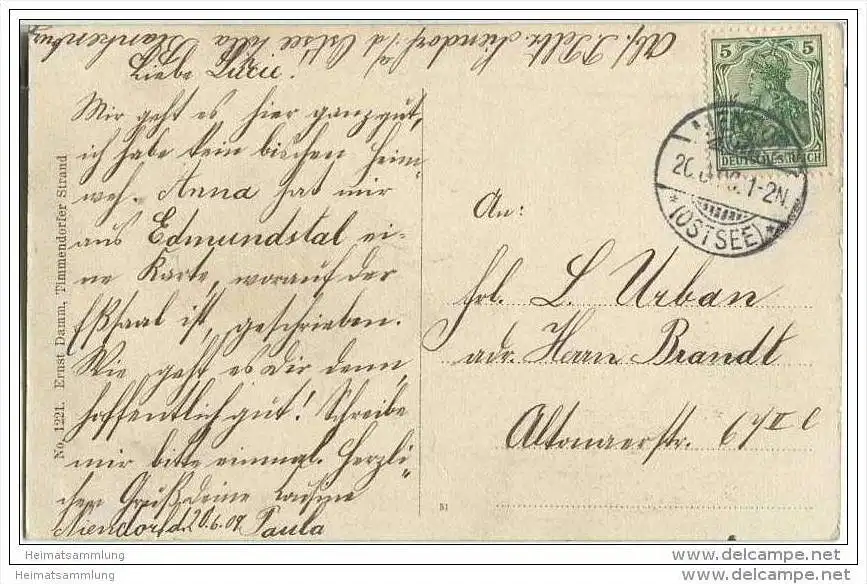 Abs. P. Niendorf a/d Ostsee Villa Blankenburg
Liebe Luzie!
Mir geht es hier ganz gut,
ich habe kein bischen Heim-
weh. Anna hat mir
aus Edmundstal ei-
ne Karte, worauf der
Eßsaal ist, geschrieben.
Wie geht es Dir denn,
hoffentlich gut! Schreibe
mir bitte einmal. Herzli-
chen Gruß deine
Niendorf, d. 20.6.09 Paula
No. 1221. Ernst Damm, Timmendorfer Strand
51
5 5
DEUTSCHES REICH
1-2N.
*(OSTSEE)*
An:
Frl. L. Urban
adr. Herrn Brandt
Altonaerstr. 67 II l
Heimatsammlung
Heimatsammlung
www.delcampe.net
www.delcampe.net